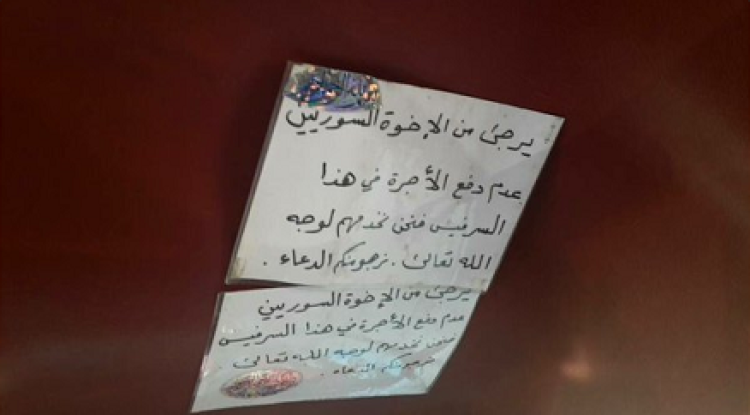 يرجى من الإخوة السوريين
عدم دفع الأجرة في هذا
السرفيس فنحن نخدمهم لوجه
الله تعالى . نرجو منكم الدعاء .
يرجى من الإخوة السوريين
عدم دفع الأجرة في هذا السرفيس
فنحن نخدمهم لوجه الله تعالى .
نرجو منكم الدعاء .